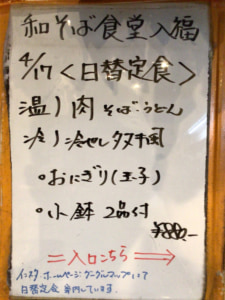 和そば食堂入福
4/17<日替定食>
温)肉そば・うどん
冷)冷やしタヌキ風
・おにぎり(玉子)
・小鉢 2品付
¥880-
=入口こちら⇒
インスタ、ホームページ、グーグルマップにて
日替定食 案内しています。